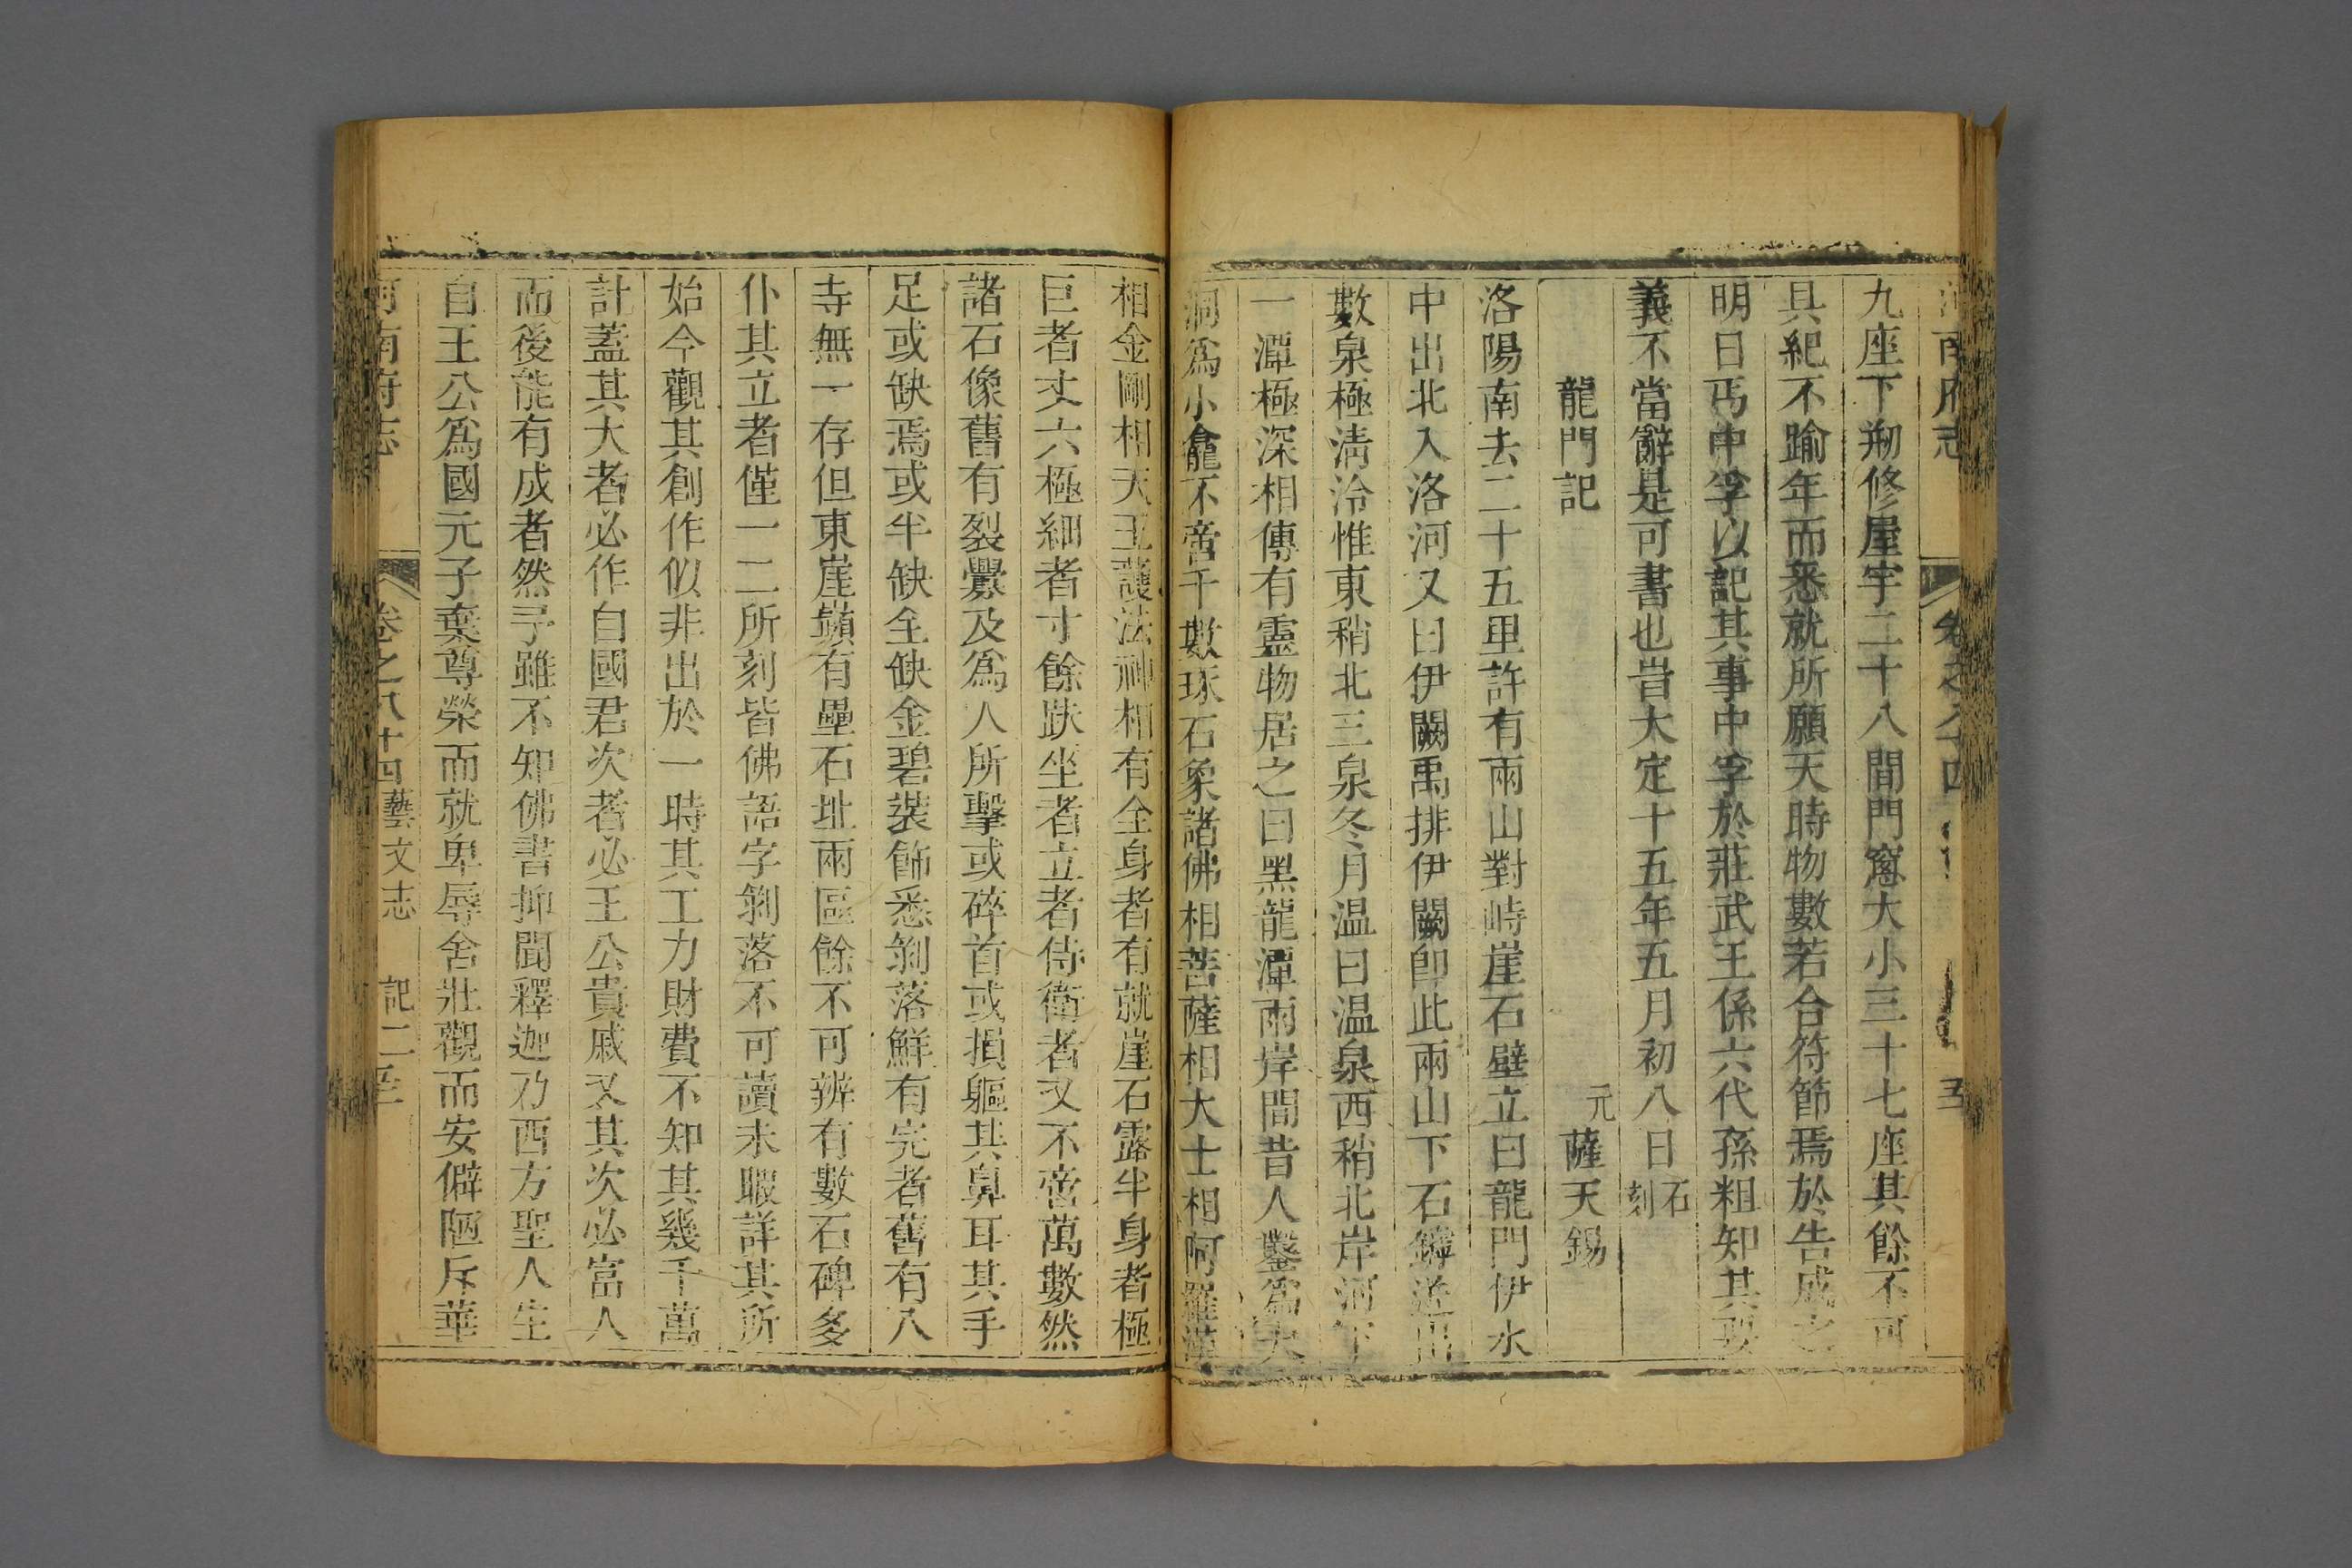 河南府志 卷之八十四 五
九座下剏修屋宇二十八間門窓大小三十七座其餘不可
具紀不踰年而悉就所願天時物數若合符節焉於告成之
明日丐中孚以記其事中孚於莊武王係六代孫粗知其要
義不當辭是可書也旹大定十五年五月初八日石刻
龍門記 元薩天錫
洛陽南去二十五里許有兩山對峙崖石壁立曰龍門伊水
中出北入洛河又曰伊闕禹排伊闕卽此兩山下石鏬迸出
數泉極淸泠惟東稍北三泉冬月温曰温泉西稍北岸河下
一潭極深相傳有靈物居之曰黑龍潭兩岸間昔人鑿爲大
洞爲小龕不啻千數琢石象諸佛相菩薩相大士相阿羅漢
相金剛相天王護法神相有全身者有就崖石露半身者極
巨者丈六極細者寸餘趺坐者立者侍衛者又不啻萬數然
諸石像舊有裂釁及爲人所擊或碎首或損軀其鼻耳其手
足或缺焉或半缺全缺金碧裝飾悉剝落鮮有完者舊有八
寺無一存但東崖巔有壘石址兩區餘不可辨有數石碑多
仆其立者僅一二所刻皆佛語字剝落不可讀未暇詳其所
始今觀其創作似非出於一時其工力財費不知其幾千萬
計蓋其大者必作自國君次者必王公貴戚又其次必富人
而後能有成者然予雖不知佛書抑聞釋迦乃西方聖人生
自王公爲國元子棄尊榮而就卑辱舍壯觀而安僻陋斥華
河南府志 卷之八十四 藝文志 記二